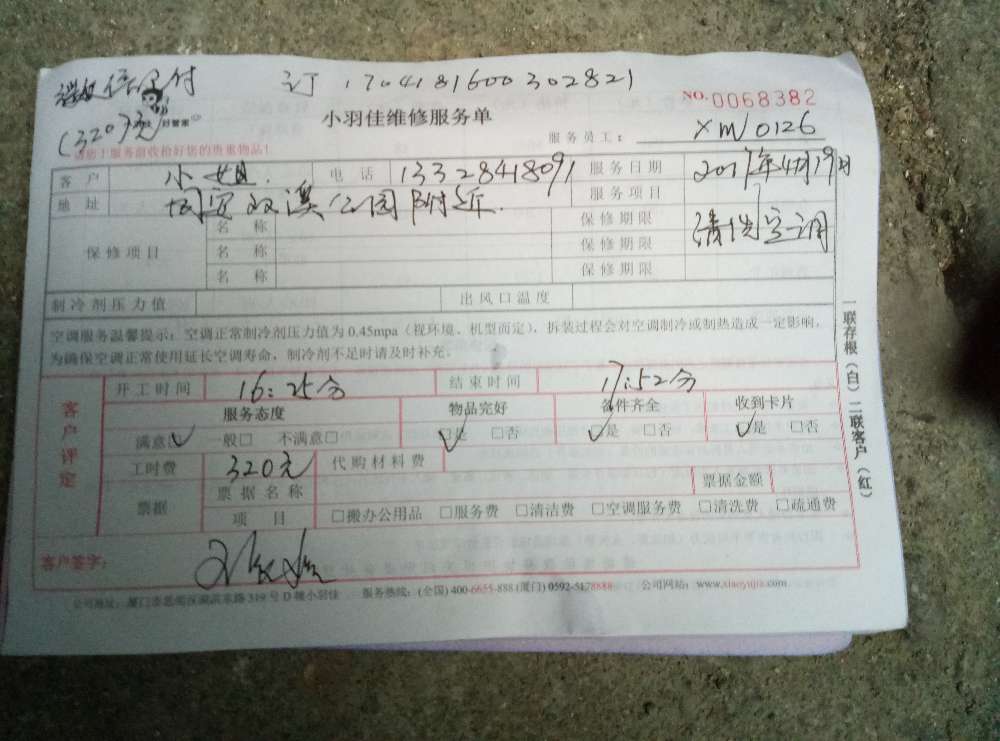 付 订 170418160030282​1
(320)元 好管家 小羽佳维修服务单 NO.0068382
请您于服务前收拾好您的贵重物品! 服务员工: XM0126
客户 小姐. 电话 13328418091 服务日期 2017年4月19日
地址 同安双溪公园附近. 服务项目 清洗空调
保修项目 名称 保修期限
名称 保修期限
名称 保修期限
制冷剂压力值 出风口温度
空调服务温馨提示:空调正常制冷剂压力值为0.45mpa(视环境、机型而定),拆装过程会对空调制冷或制热造成一定影响,
为确保空调正常使用延长空调寿命,制冷剂不足时请及时补充。
一联存根(白)二联客户(红)
客户评定
开工时间 16:25分 结束时间 17:52分
服务态度 物品完好 备件齐全 收到卡片
满意☑ 一般□ 不满意□ ☑是 □否 ☑是 □否 ☑是 □否
工时费 320元 代购材料费
票据 票据名称 票据金额
项目 □搬办公用品 □服务费 □清洁费 □空调服务费 □清洗费 □疏通费
客户签字:
公司地址:厦门市思明区湖滨东路319号D幢小羽佳 服务热线:(全国)400-6655-888(厦门)0592-5178888 公司网站:www.xiaoyujia.com